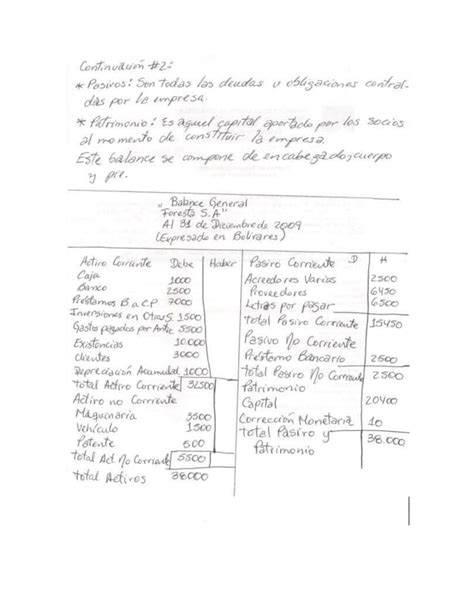 Continuación #2:
* Pasivos: Son todas las deudas u obligaciones contraí-
das por la empresa.
* Patrimonio: Es aquel capital aportado por los socios
al momento de constituir la empresa.
Este balance se compone de encabezado, cuerpo
y pie.
Balance General
"Foresta S.A"
Al 31 de Diciembre de 2009
(Expresado en Bolivares)
Activo Corriente Debe Haber Pasivo Corriente D H
Caja 1000 Acreedores Varios 2500
Banco 2500 Proveedores 6450
Préstamos B a C.P 7000 Letras por pagar 6500
Inversiones en Otras S. 1500 Total Pasivo Corriente 15450
Gastos pagados por Antic 5500 Pasivo No Corriente
Existencias 10.000 Préstamo Bancario 2500
Clientes 3000 Total Pasivo No Corriente 2500
Depreciación Acumulad 1000 Patrimonio
Total Activo Corriente 32500 Capital 20400
Activo no Corriente Corrección Monetaria 10
Maquinaria 3500 Total Pasivo y
Vehículo 1500 Patrimonio 38.000
Patente 500
Total Act. No Corriente 5500
Total Activos 38000